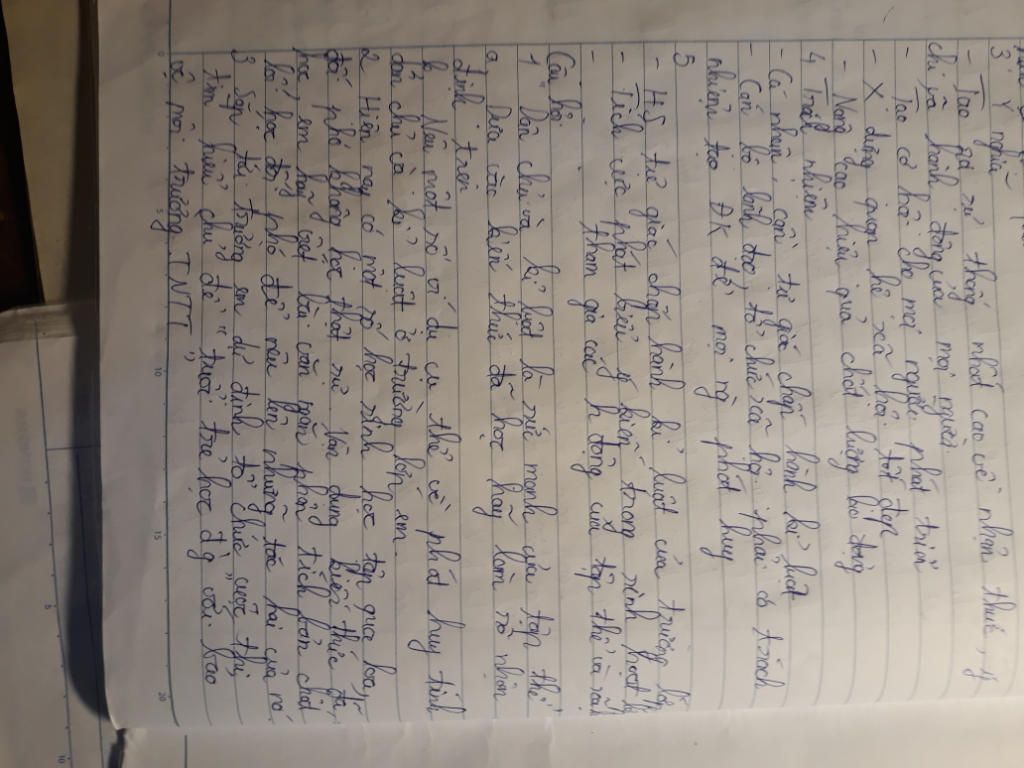 3 Ý nghĩa
- Tạo ra sự thống nhất cao về nhận thức, ý
chí và hành động của mọi người.
- Tạo cơ hội cho mọi người phát triển
- X dựng quan hệ xã hội tốt đẹp
- Nâng cao hiệu quả chất lượng lao động
4 Trách nhiệm
- Cá nhân: cần tự giác chấp hành kỉ luật
- Cán bộ lãnh đạo tổ chức xã hội phải có trách
nhiệm tạo ĐK để mọi ng phát huy
5
- HS tự giác chấp hành kỉ luật của trường lớp
- Tích cực phát biểu ý kiến trong sinh hoạt
- tham gia các h động của tập thể và xã
Câu hỏi
1 "Dân chủ và kỉ luật là sức mạnh của tập thể"
a Dựa vào kiến thức đã học hãy làm rõ nhận
định trên
b Nêu một số ví dụ cụ thể về phát huy tính
dân chủ và kỉ luật ở trường lớp em.
2 Hiện nay có một số học sinh học tập qua loa,
đối phó không học thật sự. Vận dụng kiến thức đã
học em hãy viết bài văn ngắn phân tích bản chất
lối học đối phó để nêu lên những tác hại của nó
3 Sắp tới trường em dự định tổ chức cuộc thi
tìm hiểu chủ đề "tuổi trẻ học đg với bảo
vệ môi trường TNTT"